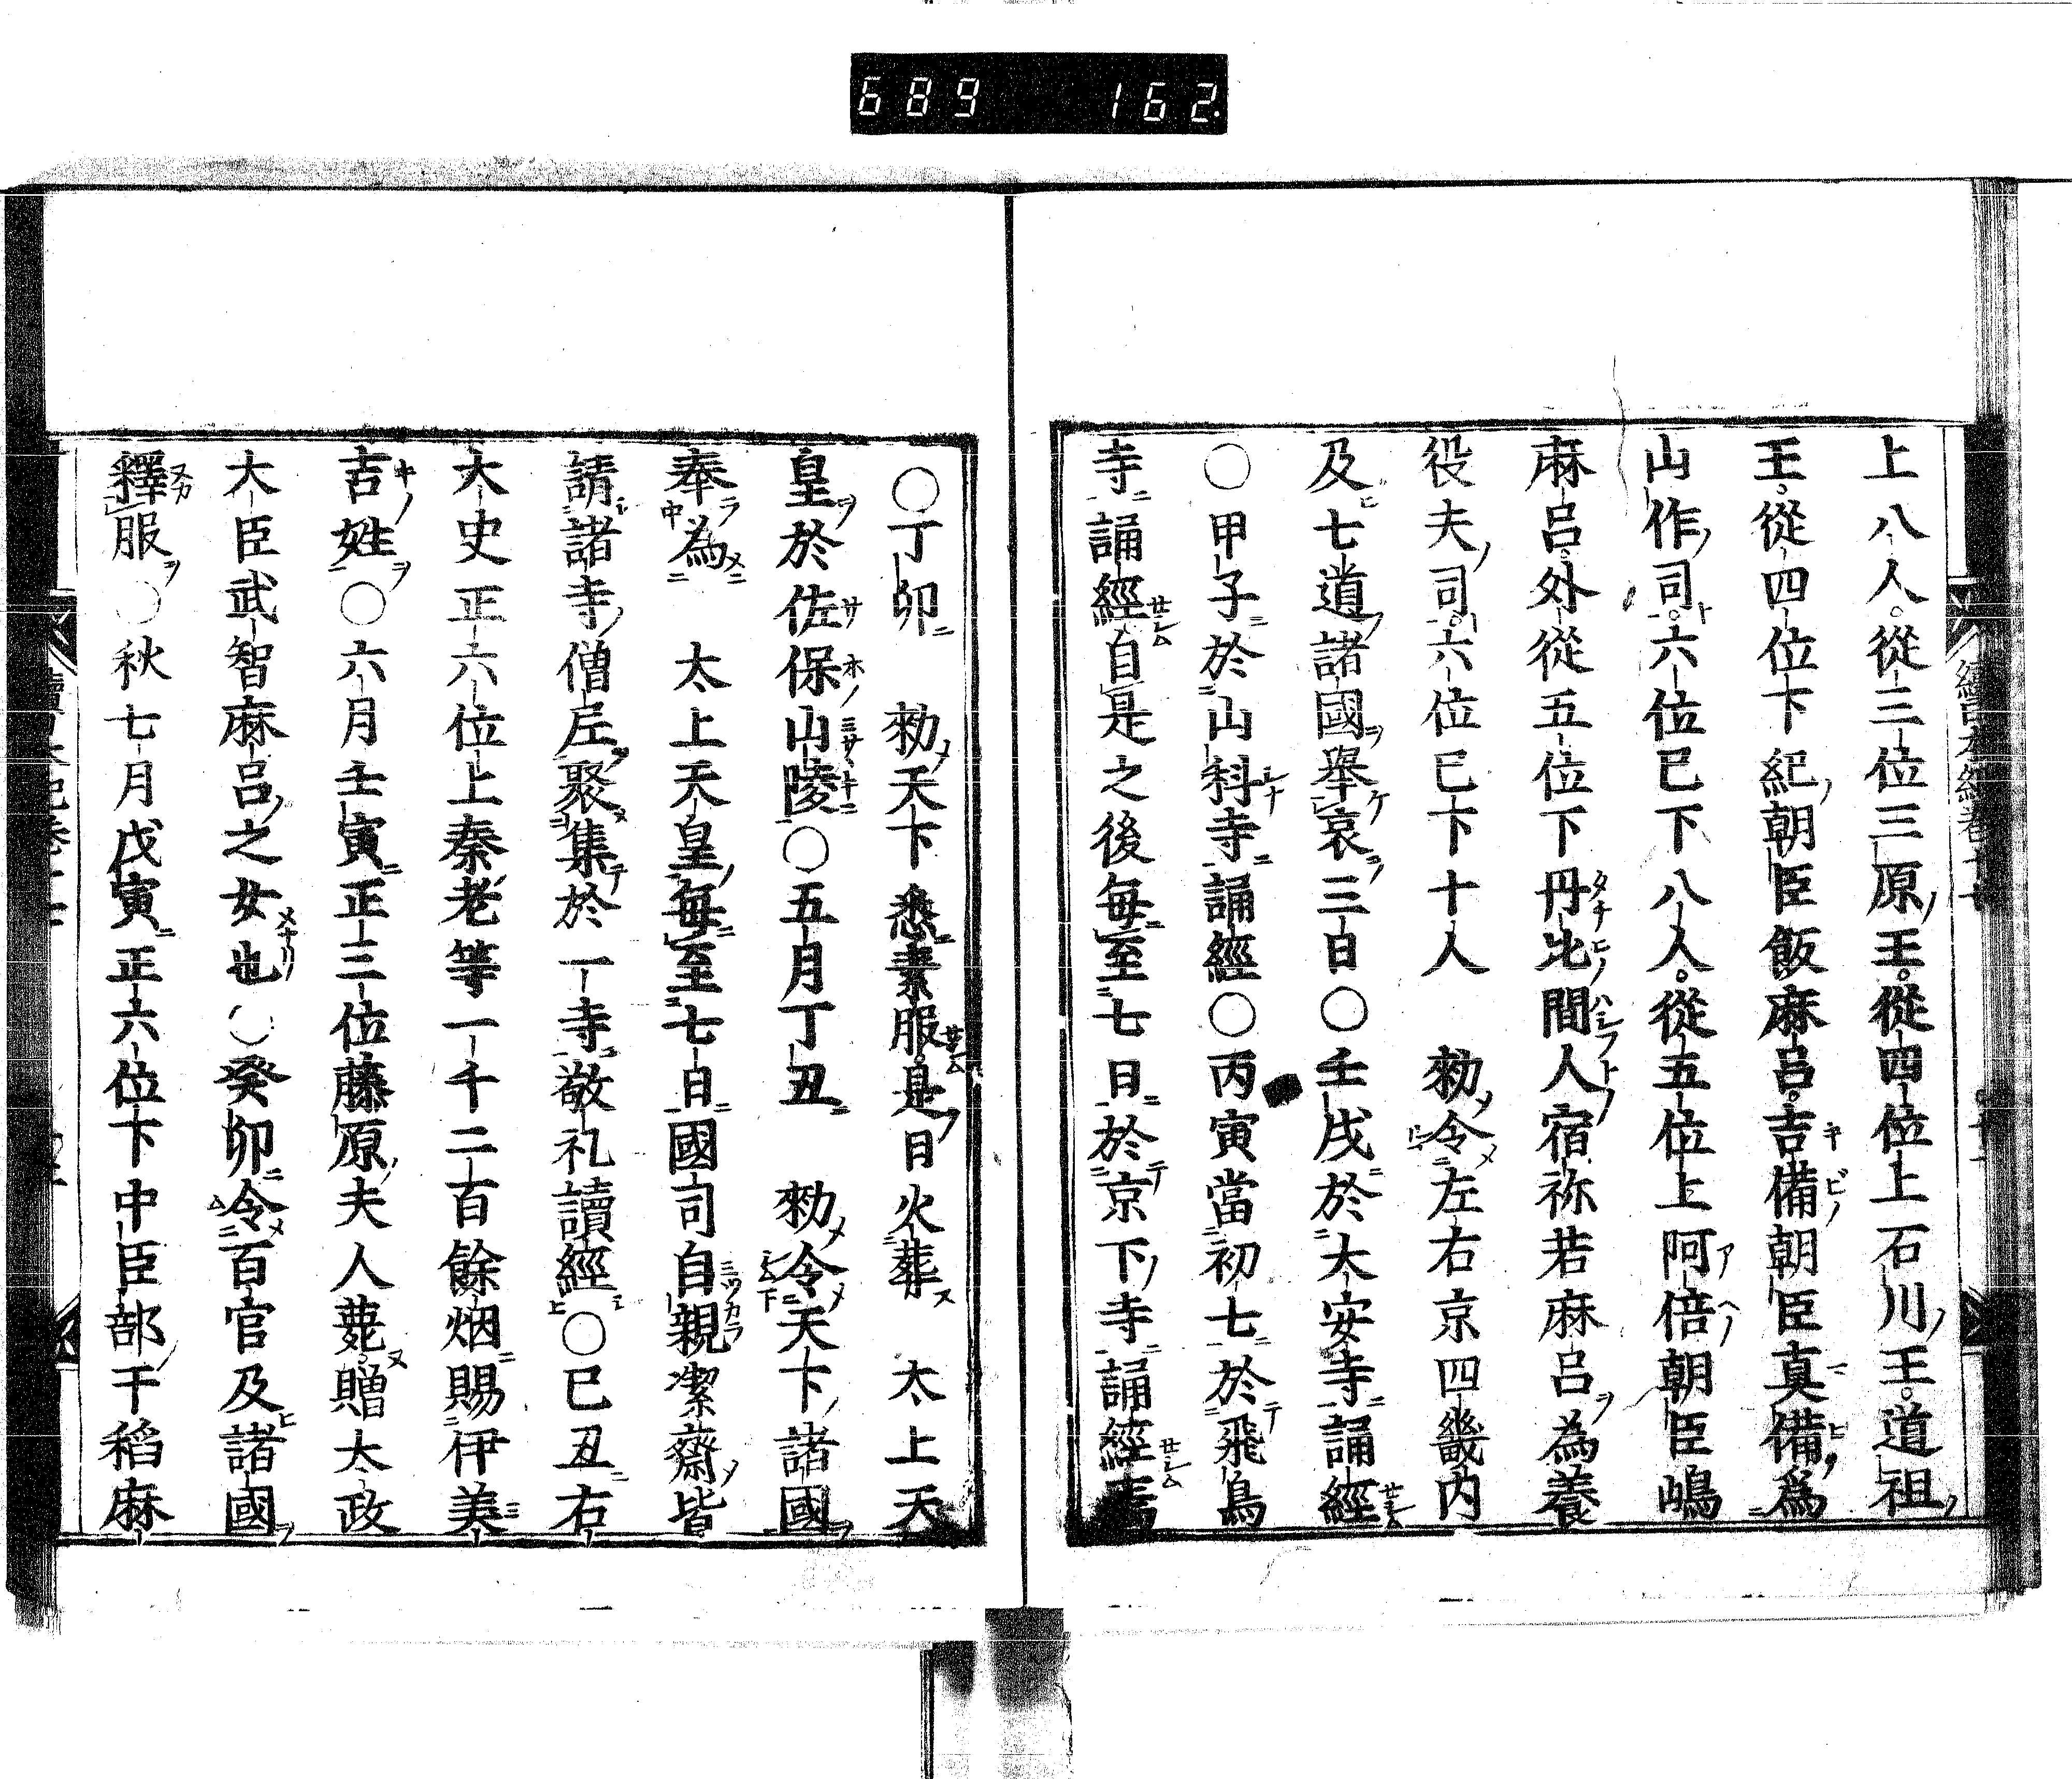 689 162
上八人。從三位三原王。從四位上石川王。道祖
王。從四位下紀朝臣飯麻呂。吉備朝臣真備爲
山作司。六位已下八人。從五位上阿倍朝臣嶋
麻呂。外從五位下丹比間人宿祢若麻呂為養
役夫司。六位已下十人　勑令左右京四畿内
及七道諸國舉哀三日〇壬戌於大安寺誦經
〇甲子於山科寺誦經〇丙寅當初七於飛鳥
寺誦經自是之後毎至七日於京下寺誦經焉
〇丁卯　勑天下悉素服是日火葬　太上天
皇於佐保山陵〇五月丁丑　勑令天下諸國
奉為　太上天皇毎至七日國司自親潔齋皆
請諸寺僧尼聚集於一寺敬礼讀經〇己丑右
大史正六位上秦老等一千二百餘烟賜伊美
吉姓〇六月壬寅正三位藤原夫人薨。贈太政
大臣武智麻呂之女也〇癸卯令百官及諸國
釋服〇秋七月戊寅正六位下中臣部干稻麻